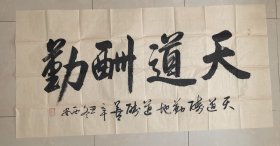 天道酬勤
天道酬勤地道酬善